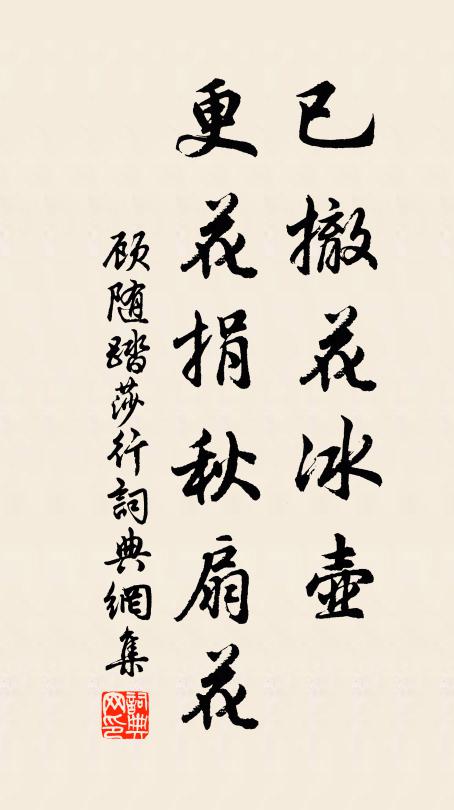 已撤花冰壺
更花捐秋扇花
顾随踏莎行詞典網集
詞典
网印